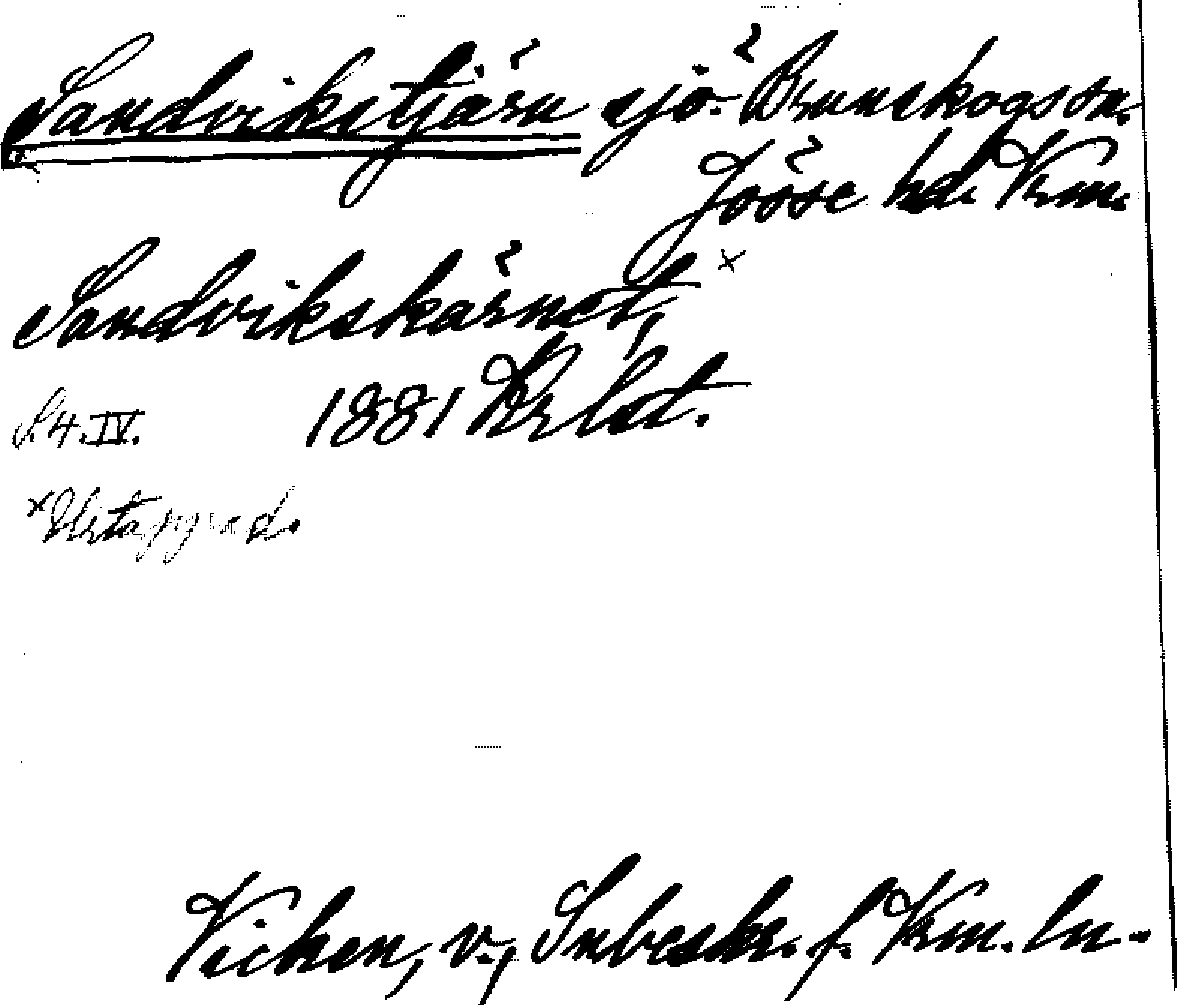 Sandvikstjärn sjö. Brunskogs sn.
Jösse hd. Vrm.
Sandvikskärnet, ×
S. 4. IV. 1881 Krlst.
×
Vicken, v., Snbeskr. f. Vrm. ln.